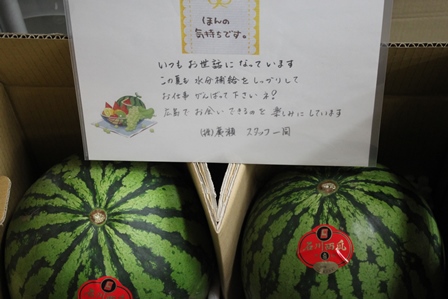 ほんの
気持ちです。
いつもお世話になっています
この夏も水分補給をしっかりして
お仕事がんばって下さいネ!
広島でお会いできるのを楽しみにしています
(株)廣瀬 スタッフ一同
石川西瓜